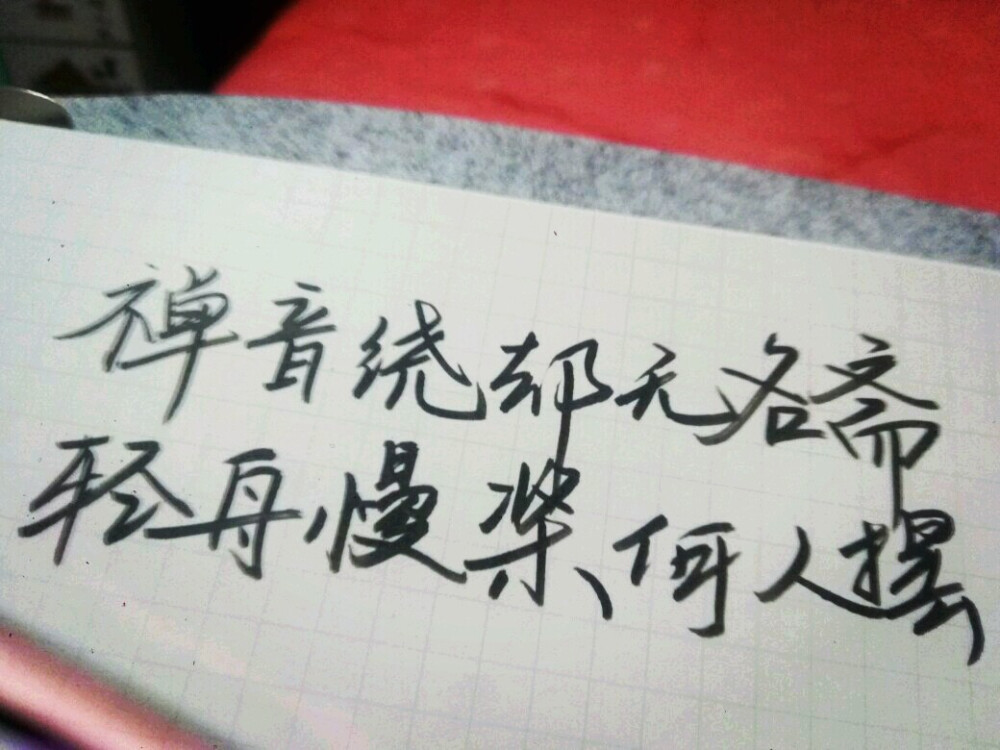 禅音绕却无名斋
轻舟慢桨何人摆